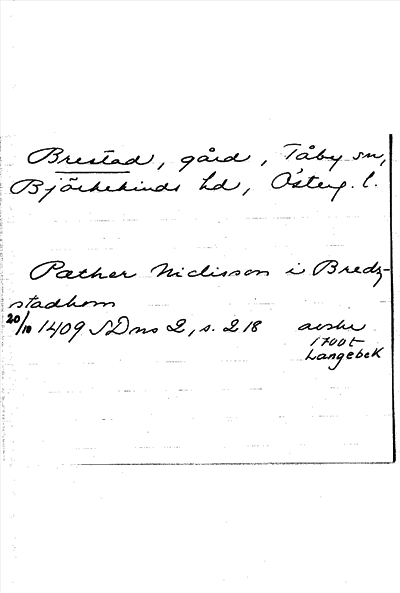 Brestad, gård, Tåby sn,
Björkekinds hd, Österg. l.
Pæther Niclisson i Bredz-
stadhom
20/10 1409 SD ns 2, s. 218 avskr
1700t
Langebek